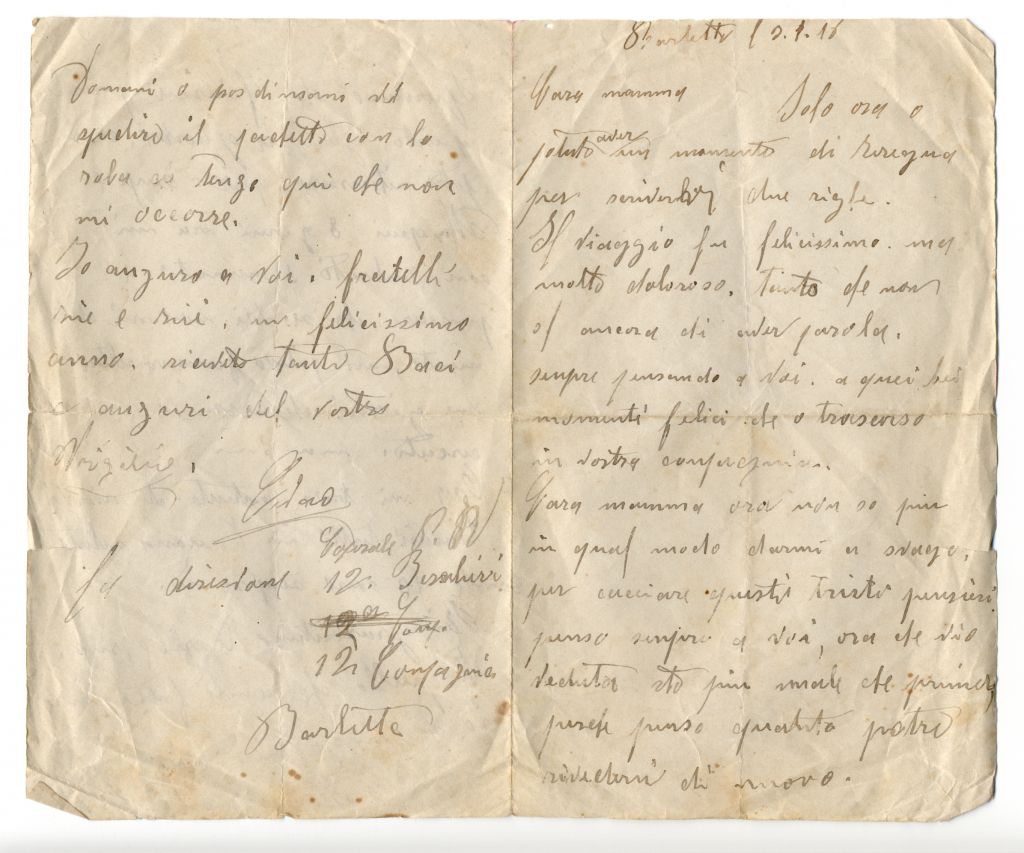 Barletta 1 3.1.16
Cara mamma Solo ora o
potuto aver un momento di
per scrivervi due righe.
Il viaggio fu felicissimo. ma
molto doloroso. tanto che non
o ancora di aver parola.
sempre pensando a voi. a quei bei
momenti felici che o trascorso
in vostra compagnia.
Cara mamma ora non so piu
in qual modo darmi a svago,
per cacciare questi tristi pensieri
penso sempre a voi, ora che vio
veduta sto piu male che prima,
perche penso quando potro
rivedervi di nuovo.
Domani o posdimani vi
spediro il pachetto con la
roba che tengo qui che non
mi occorre.
Io auguro a voi. fratelli
zie e zii. un felicissimo
anno. ricevete tanti Baci
e auguri del vostro
Virgilio,
Ciao
Caporale
La direzione 12. Bersalieri
12a Comp.
12 Compagnia
Barletta